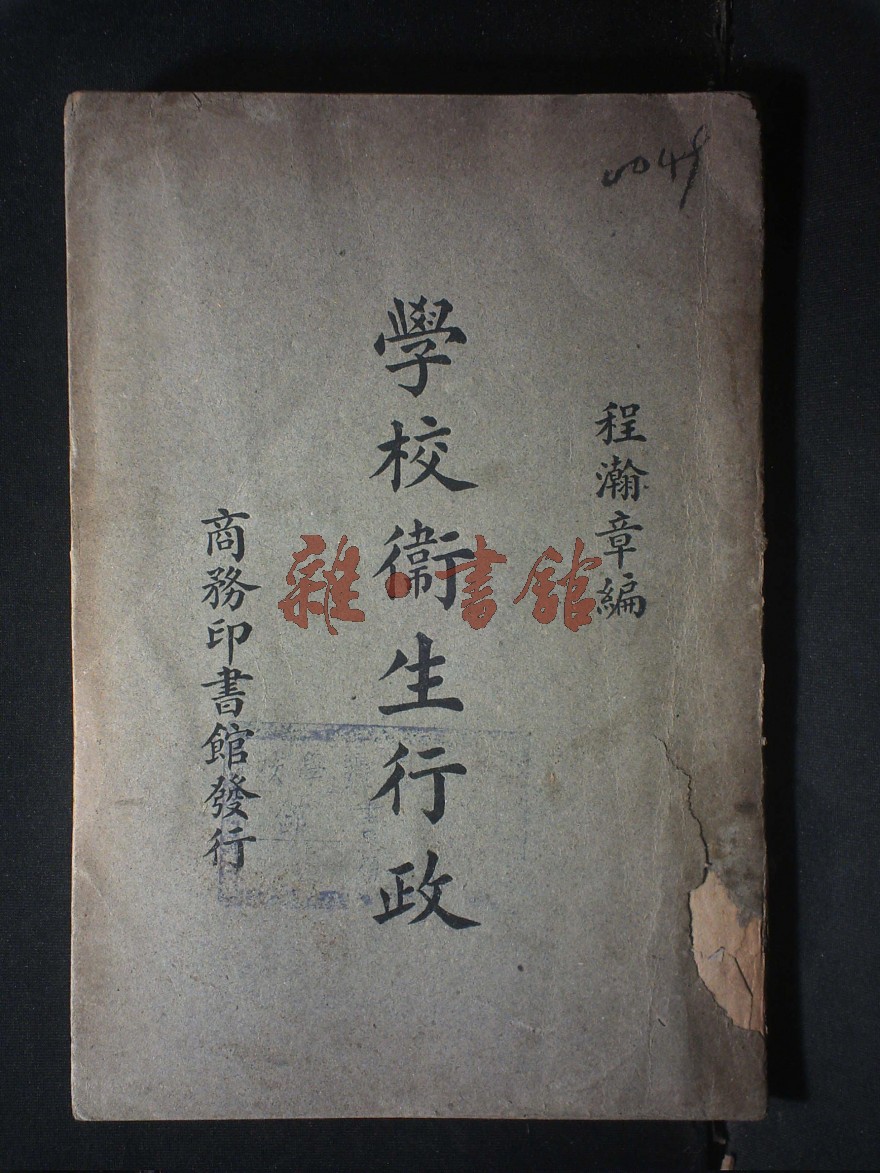 程瀚章編
學校衞生行政
商務印書館發行
雜·書館